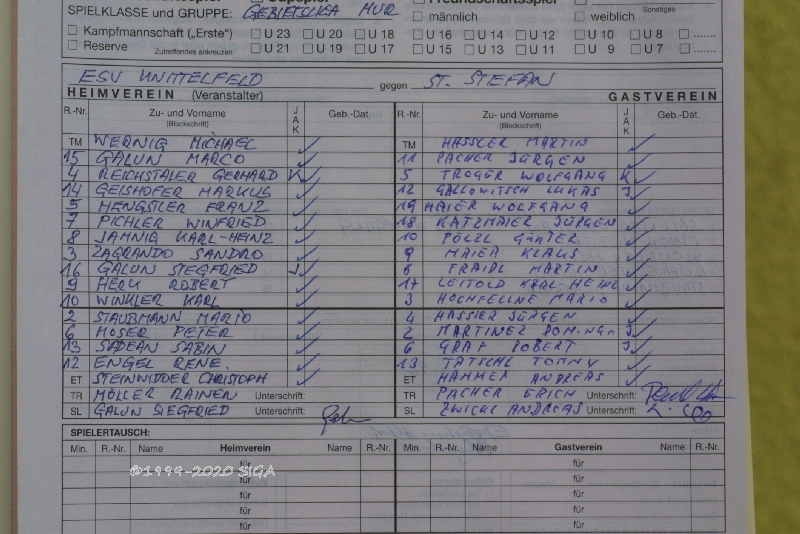 SPIELKLASSE und GRUPPE: GEBIETSLIGA MUR männlich weiblich Sonstiges
Kampfmannschaft („Erste“) U 23 U 20 U 18 U 16 U 14 U 12 U 10 U 8
Reserve Zutreffendes ankreuzen U 21 U 19 U 17 U 15 U 13 U 11 U 9 U 7
ESV KNITTELFELD gegen ST. STEFAN
HEIMVEREIN (Veranstalter) GASTVEREIN
R.-Nr. Zu- und Vorname (Blockschrift) JAK Geb.-Dat. R.-Nr. Zu- und Vorname (Blockschrift) JAK Geb.-Dat.
TM WERNIG MICHAEL TM HASSLER MARTIN
15 GALUN MARCO 11 PACHER JÜRGEN
4 REICHSTALER GERHARD K 5 TROGER WOLFGANG K
14 GEISHOFER MARKUS 12 GALLOWITSCH LUKAS J
5 HENGSTLER FRANZ 19 MAIER WOLFGANG
7 PICHLER WINFRIED 18 KATZMAIER JÜRGEN
8 JAHNIG KARL-HEINZ 10 PÖLZL GÜNTER
3 ZAGRANDO SANDRO 9 MAIER KLAUS
16 GALUN SIEGFRIED J 8 FRAIDL MARTIN
9 HERK ROBERT 17 LEITOLD KARL-HEINZ
10 WINKLER KARL 3 HOCHFELLNE MARIO
2 STAUBMANN MARIO 4 HASSLER JÜRGEN
6 MOSER PETER 2 MARTINER J
13 SADEAN SABIN 6 GRAF ROBERT J
12 ENGEL RENE 13 TATSCHL TOMMY
ET STEINNIDDER CHRISTOPH ET HAMMER ANDREAS
TR MÖLLER RAINER Unterschrift: TR PACHER ERICH Unterschrift:
SL GALUN SIEGFRIED Unterschrift: SL ZWICKL ANDREAS Unterschrift:
SPIELERTAUSCH:
Min. R.-Nr. Name Heimverein Name R.-Nr. Min. R.-Nr. Name Gastverein Name R.-Nr.
für für
für für
für für
für für
für für
©1999-2020 SIGA